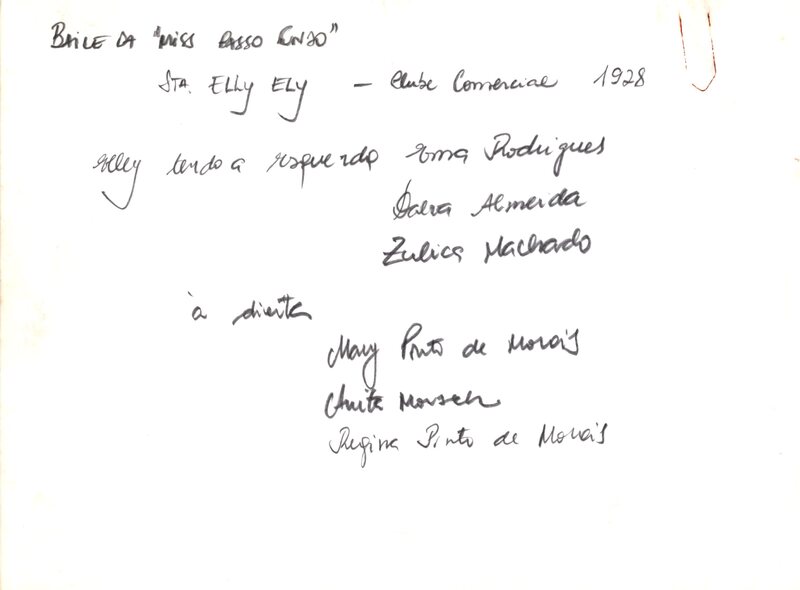 BAILE DA "MISS PASSO FUNDO"
STA. ELLY ELY – Clube Comercial 1928
Elley tendo a esquerda Ema Rodrigues
Dalva Almeida
Zulica Machado
à direita
Mary Pinto de Morais
Anita Morsch
Regina Pinto de Morais